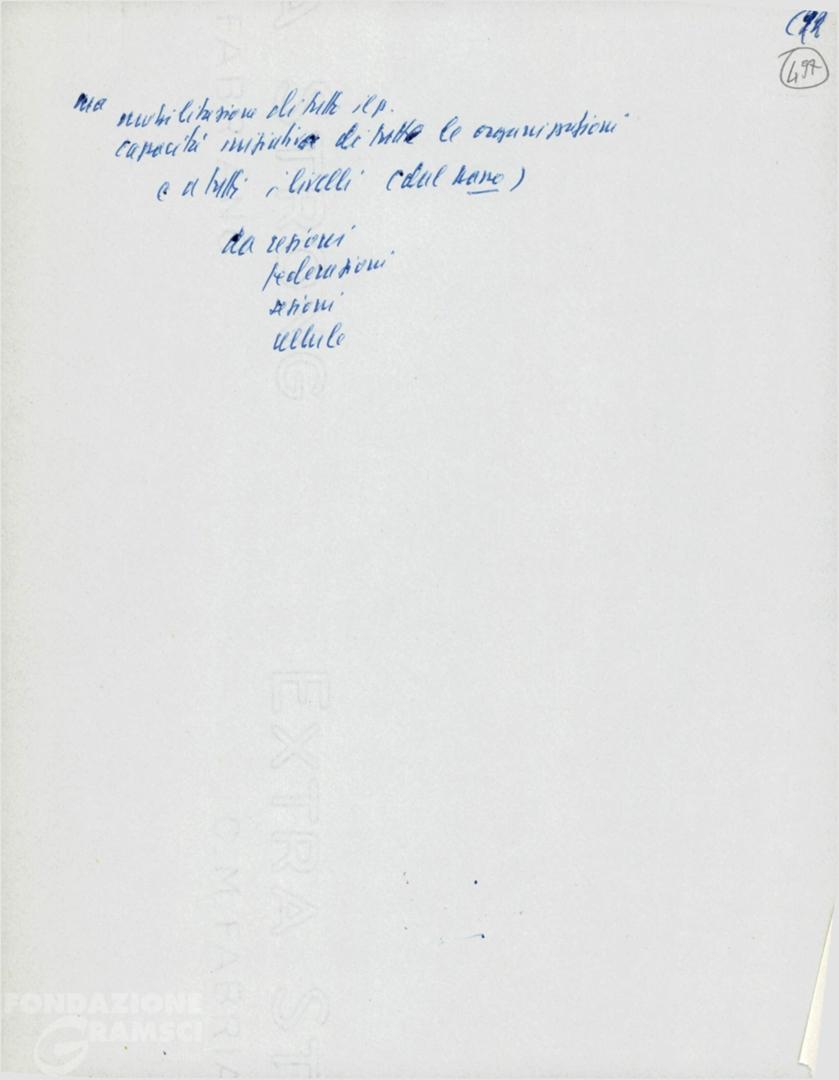 (22
497
ma mobilitazione di tutto il p.
capacità iniziativa di tutte le organizzazioni
e a tutti i livelli (dal basso)
da regioni
federazioni
sezioni
cellule
EXTRA ST
C.M.FABRIA
FONDAZIONE
GRAMSCI